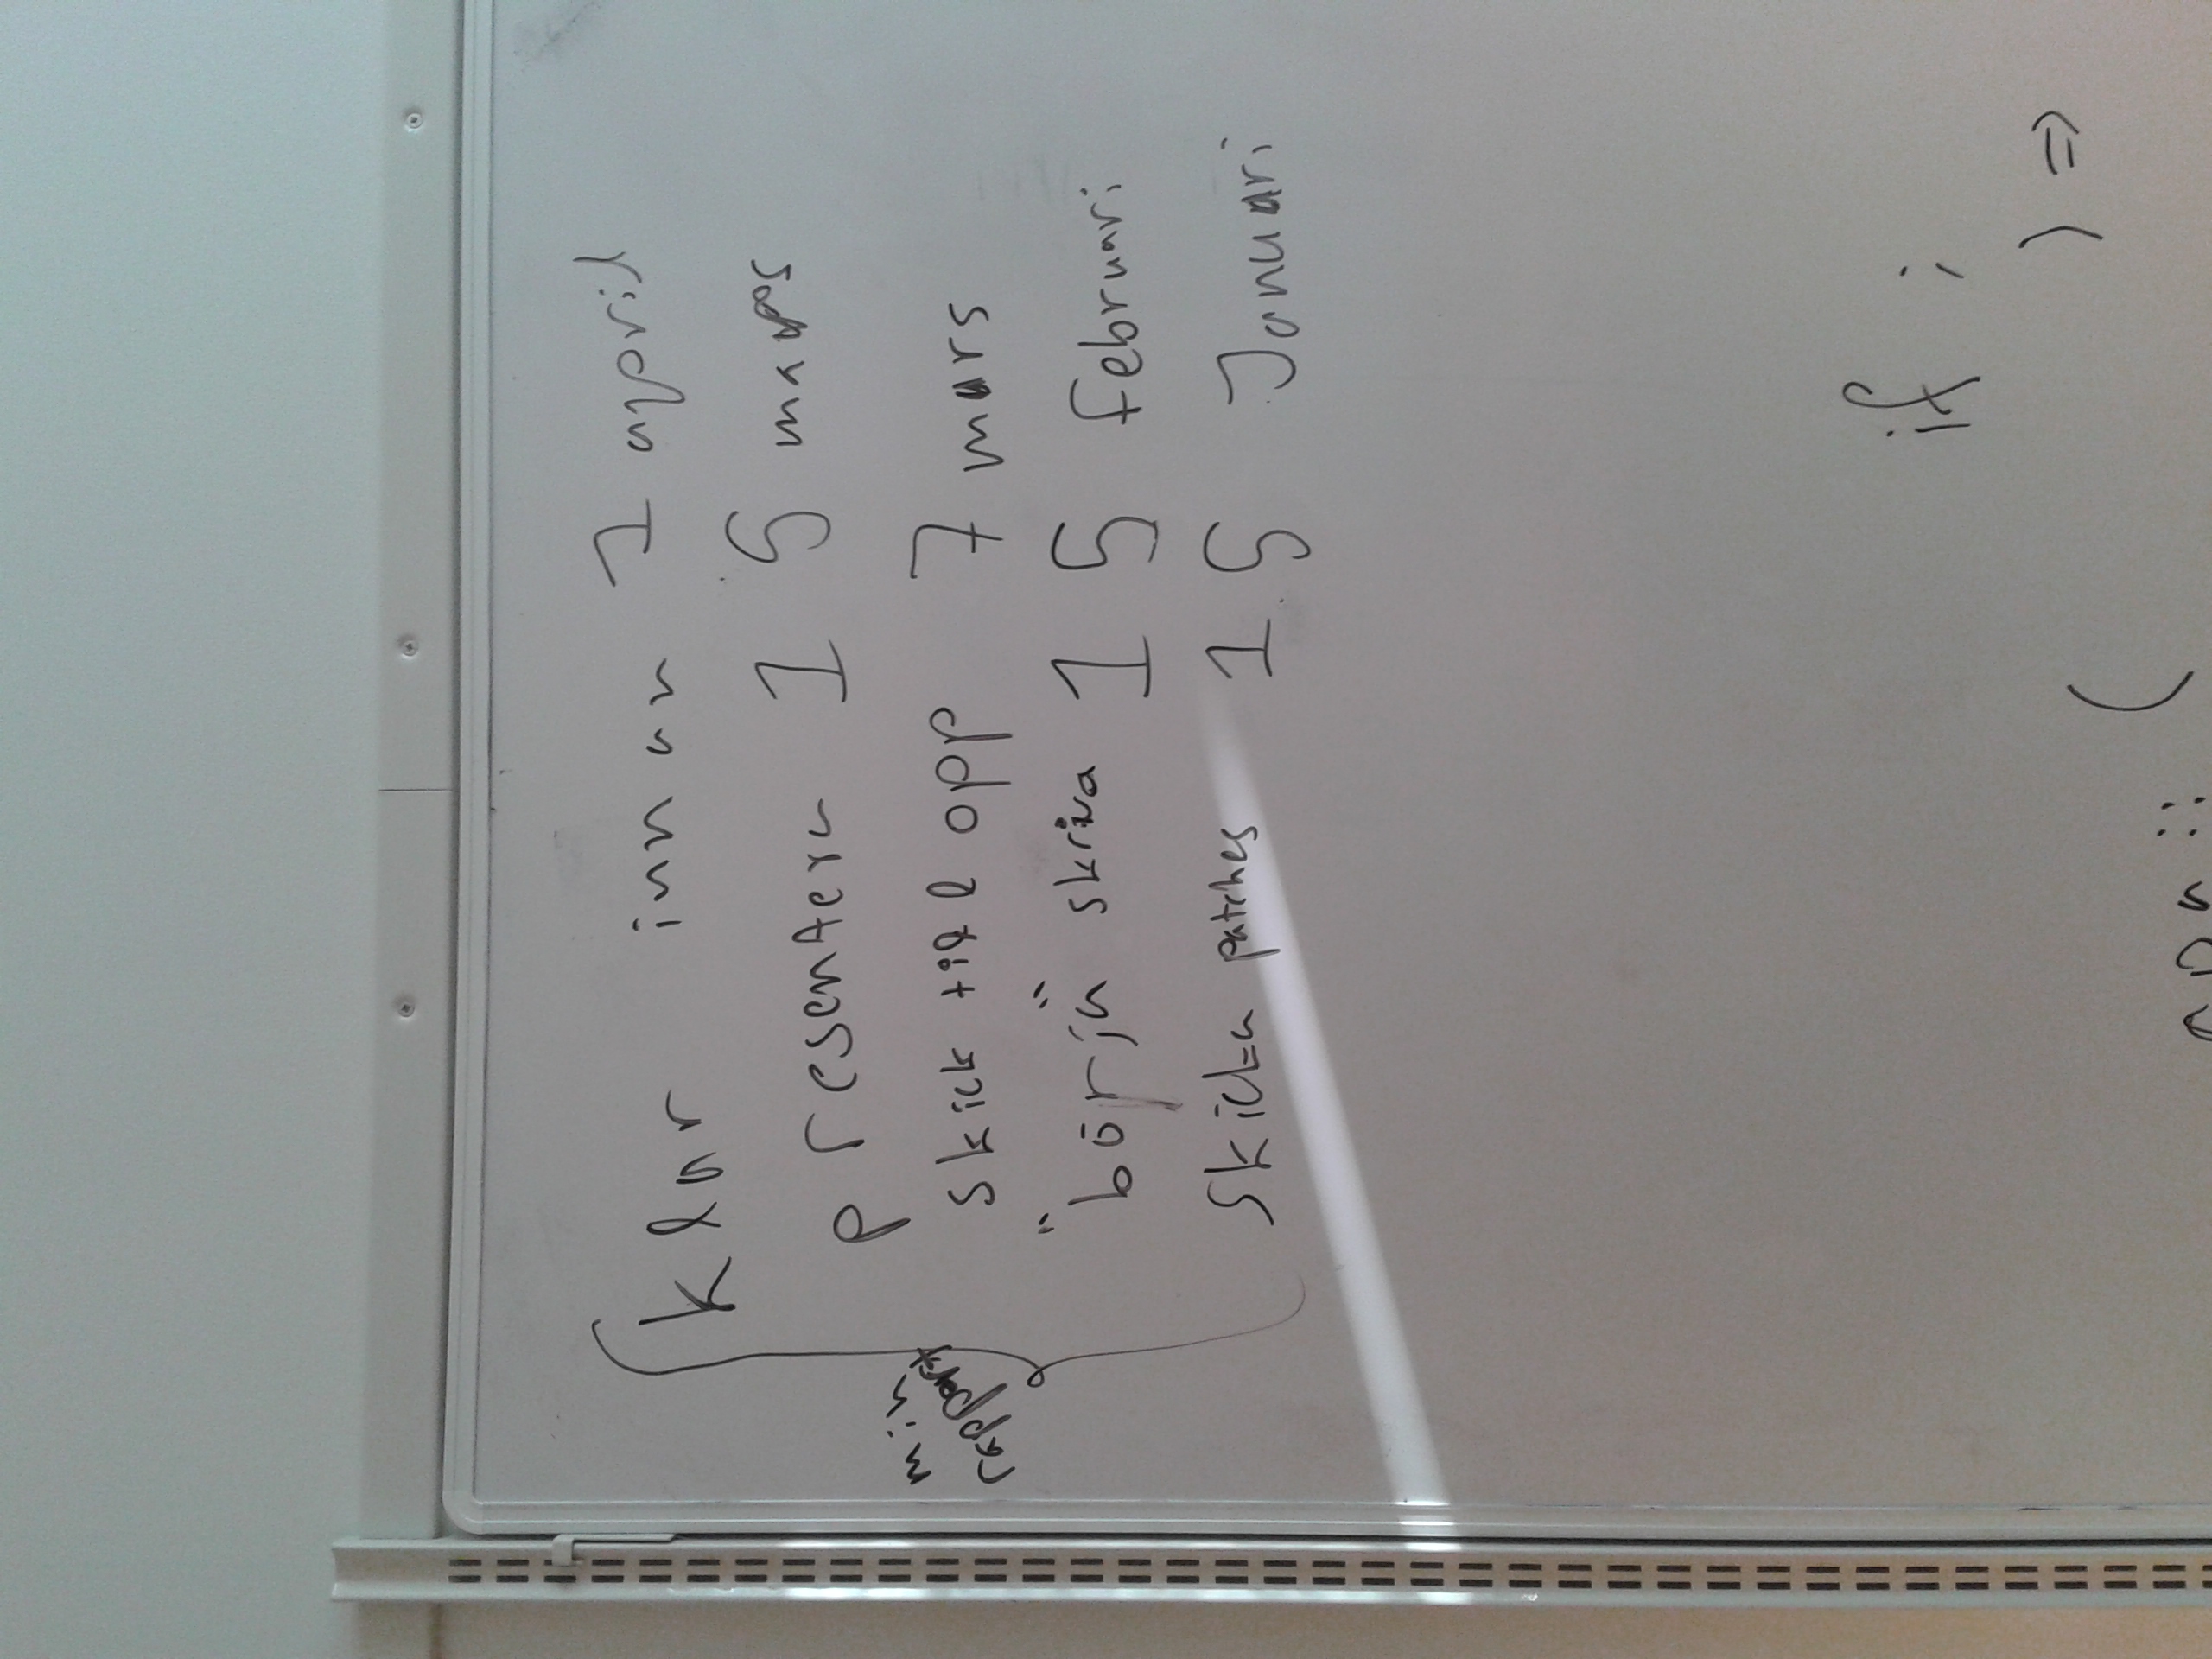 klar innan 1 april
presentera 15 mars
min
rapport
skick till opp 7 mars
"börja" skriva 15 februari
skicka patches 15 Januari
if ;
) =>
apa :: (